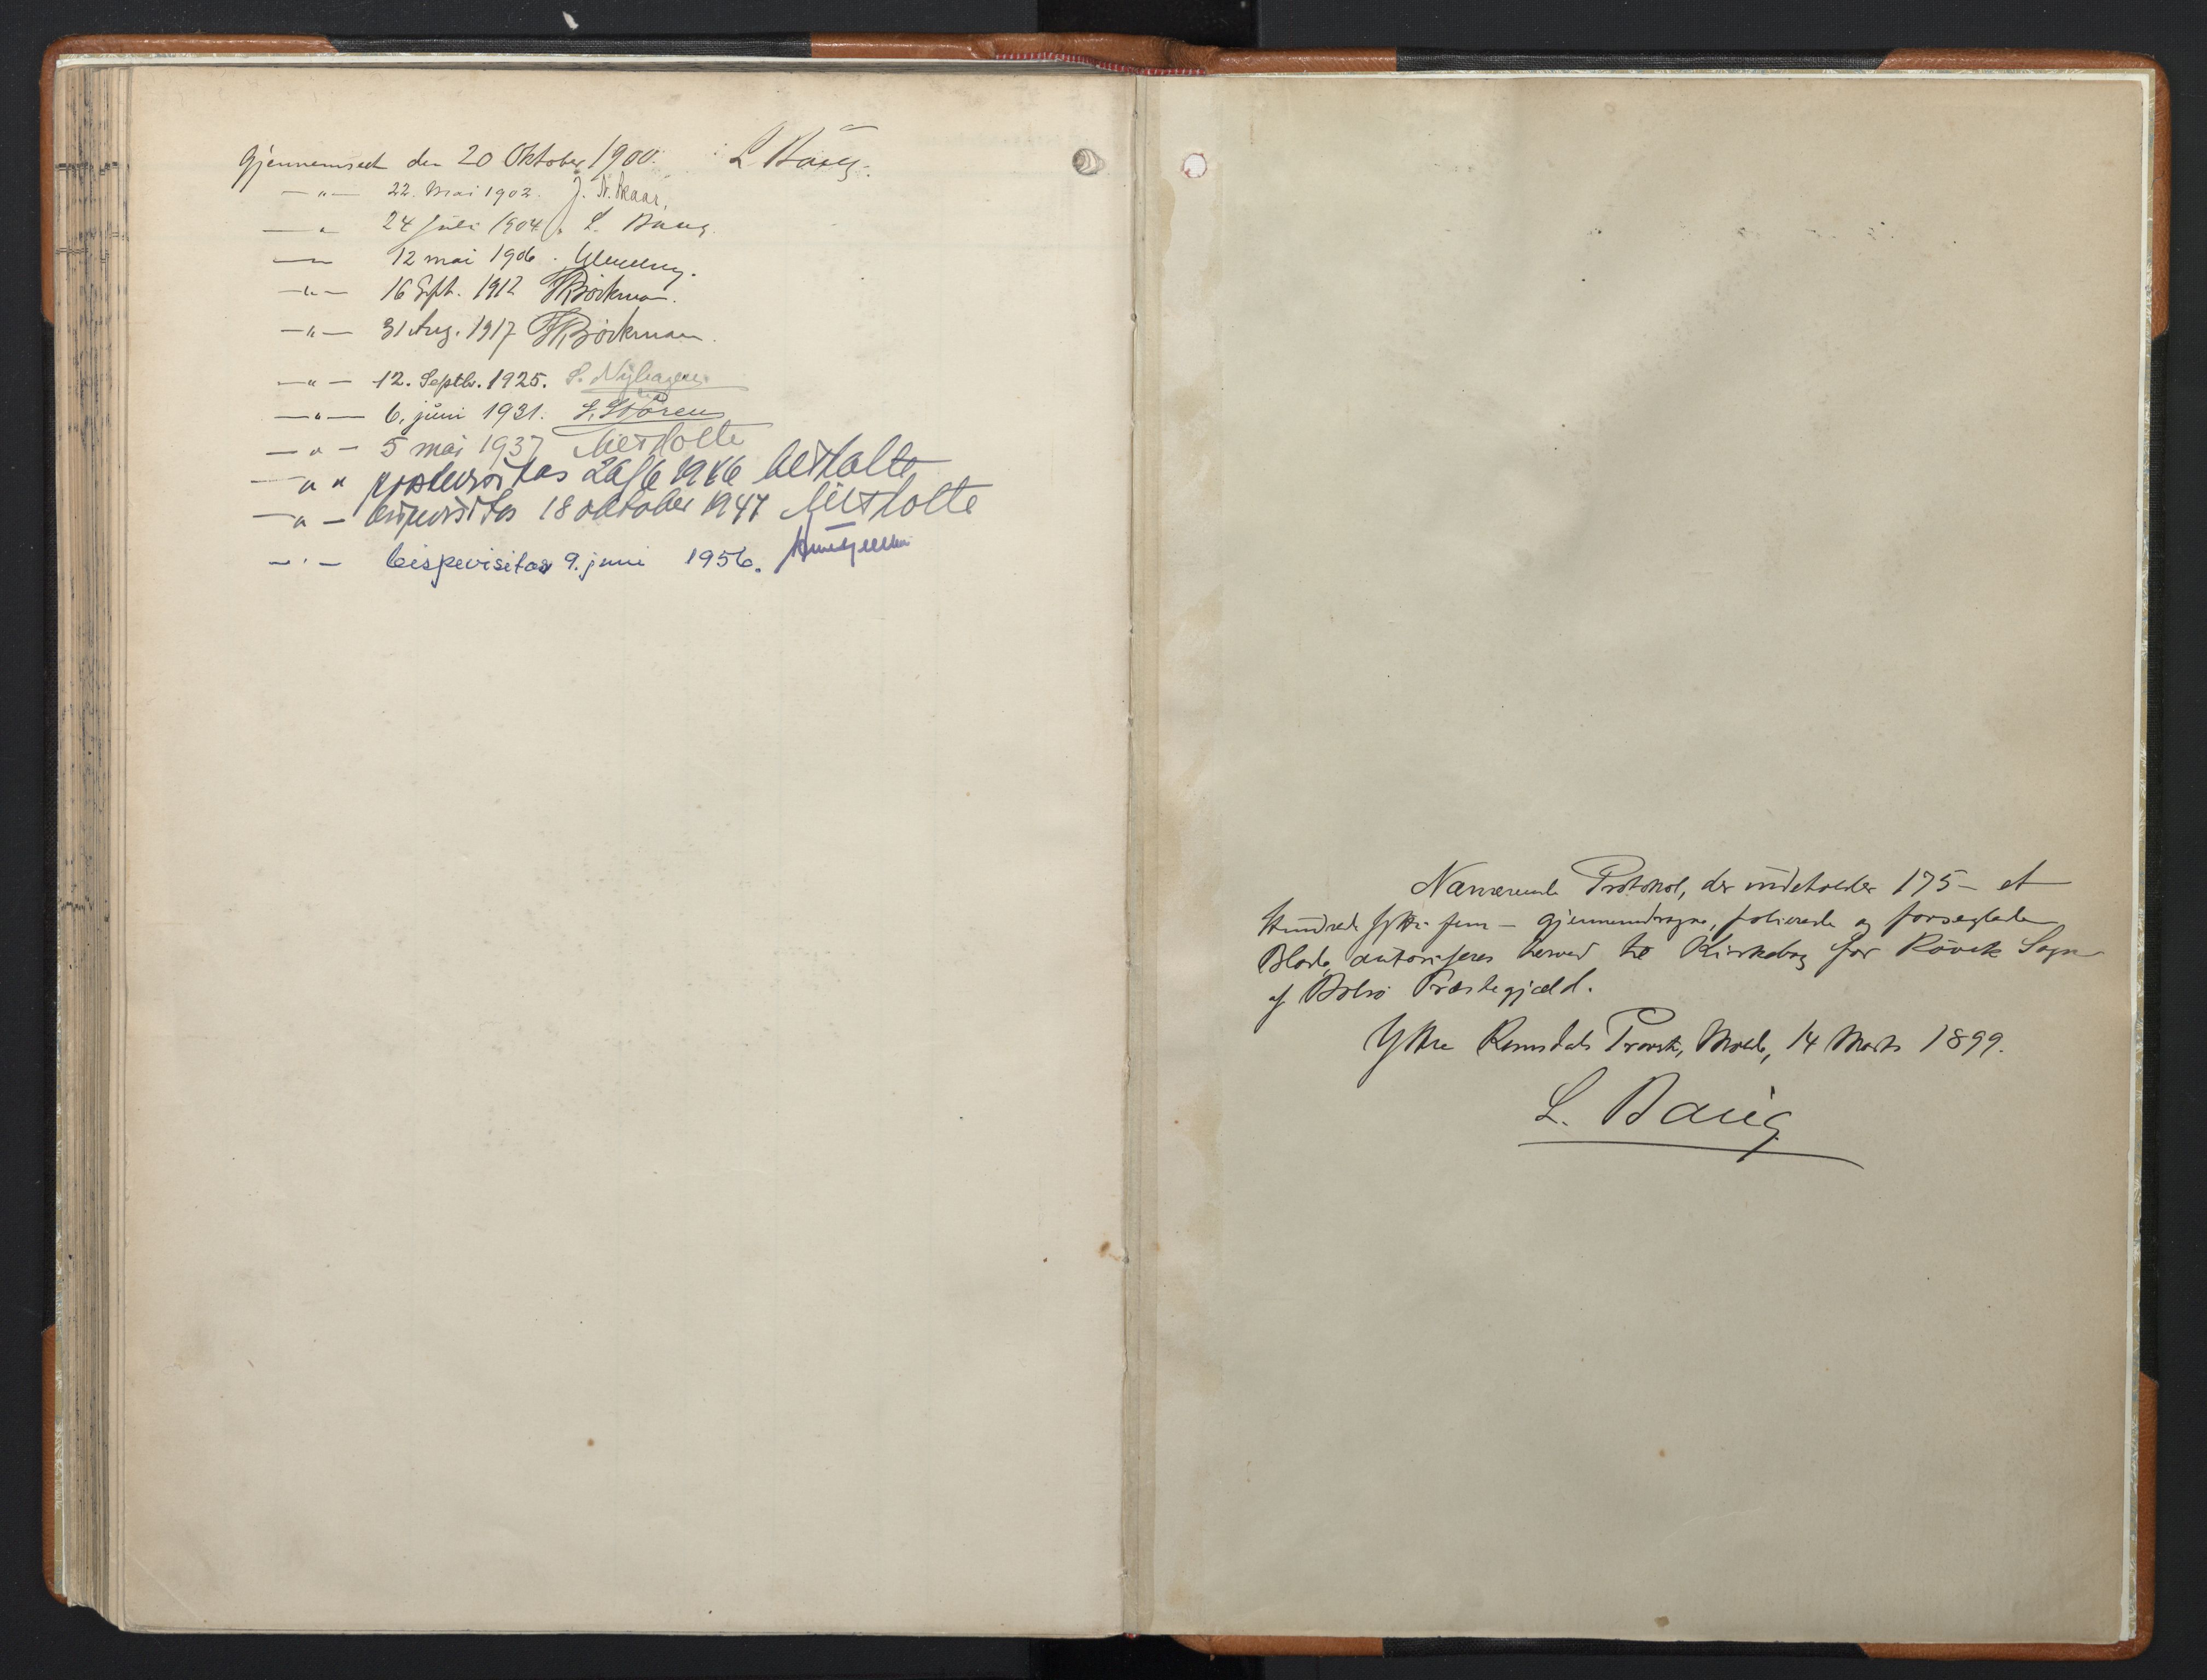 Gjennemseet den 20 Oktober 1900. L. Baug.
—"— 22. Mai 1902. J. N. Skaar.
—" 24 Juli 1904. L. Baug.
—"— 12 mai 1906.
—"— 16 Sept. 1912 Böckman.
—"— 31 Aug. 1917 Böckman.
—"— 12. Septbr. 1925. S. Nyhagen
—"— 6. juni 1931. S. Støren
—"— 5 mai 1937 Holte
—"— prostevisitas 26/6 1946 Holte
—"— bispevisitas 18 oktober 1947 Holte
—"— bispevisitas 9. juni 1956.
Nærværende Protokol, der indeholder 175 – et
Hundrede sytti fem – gjennemdragne, folierede og forseglede
Blade, autoriseres herved til Kirkebog for Røvik Sogn
af Bolsø Præstegjæld.
Ytre Romsdals Provsti, Molde, 14 Marts 1899.
L. Baug